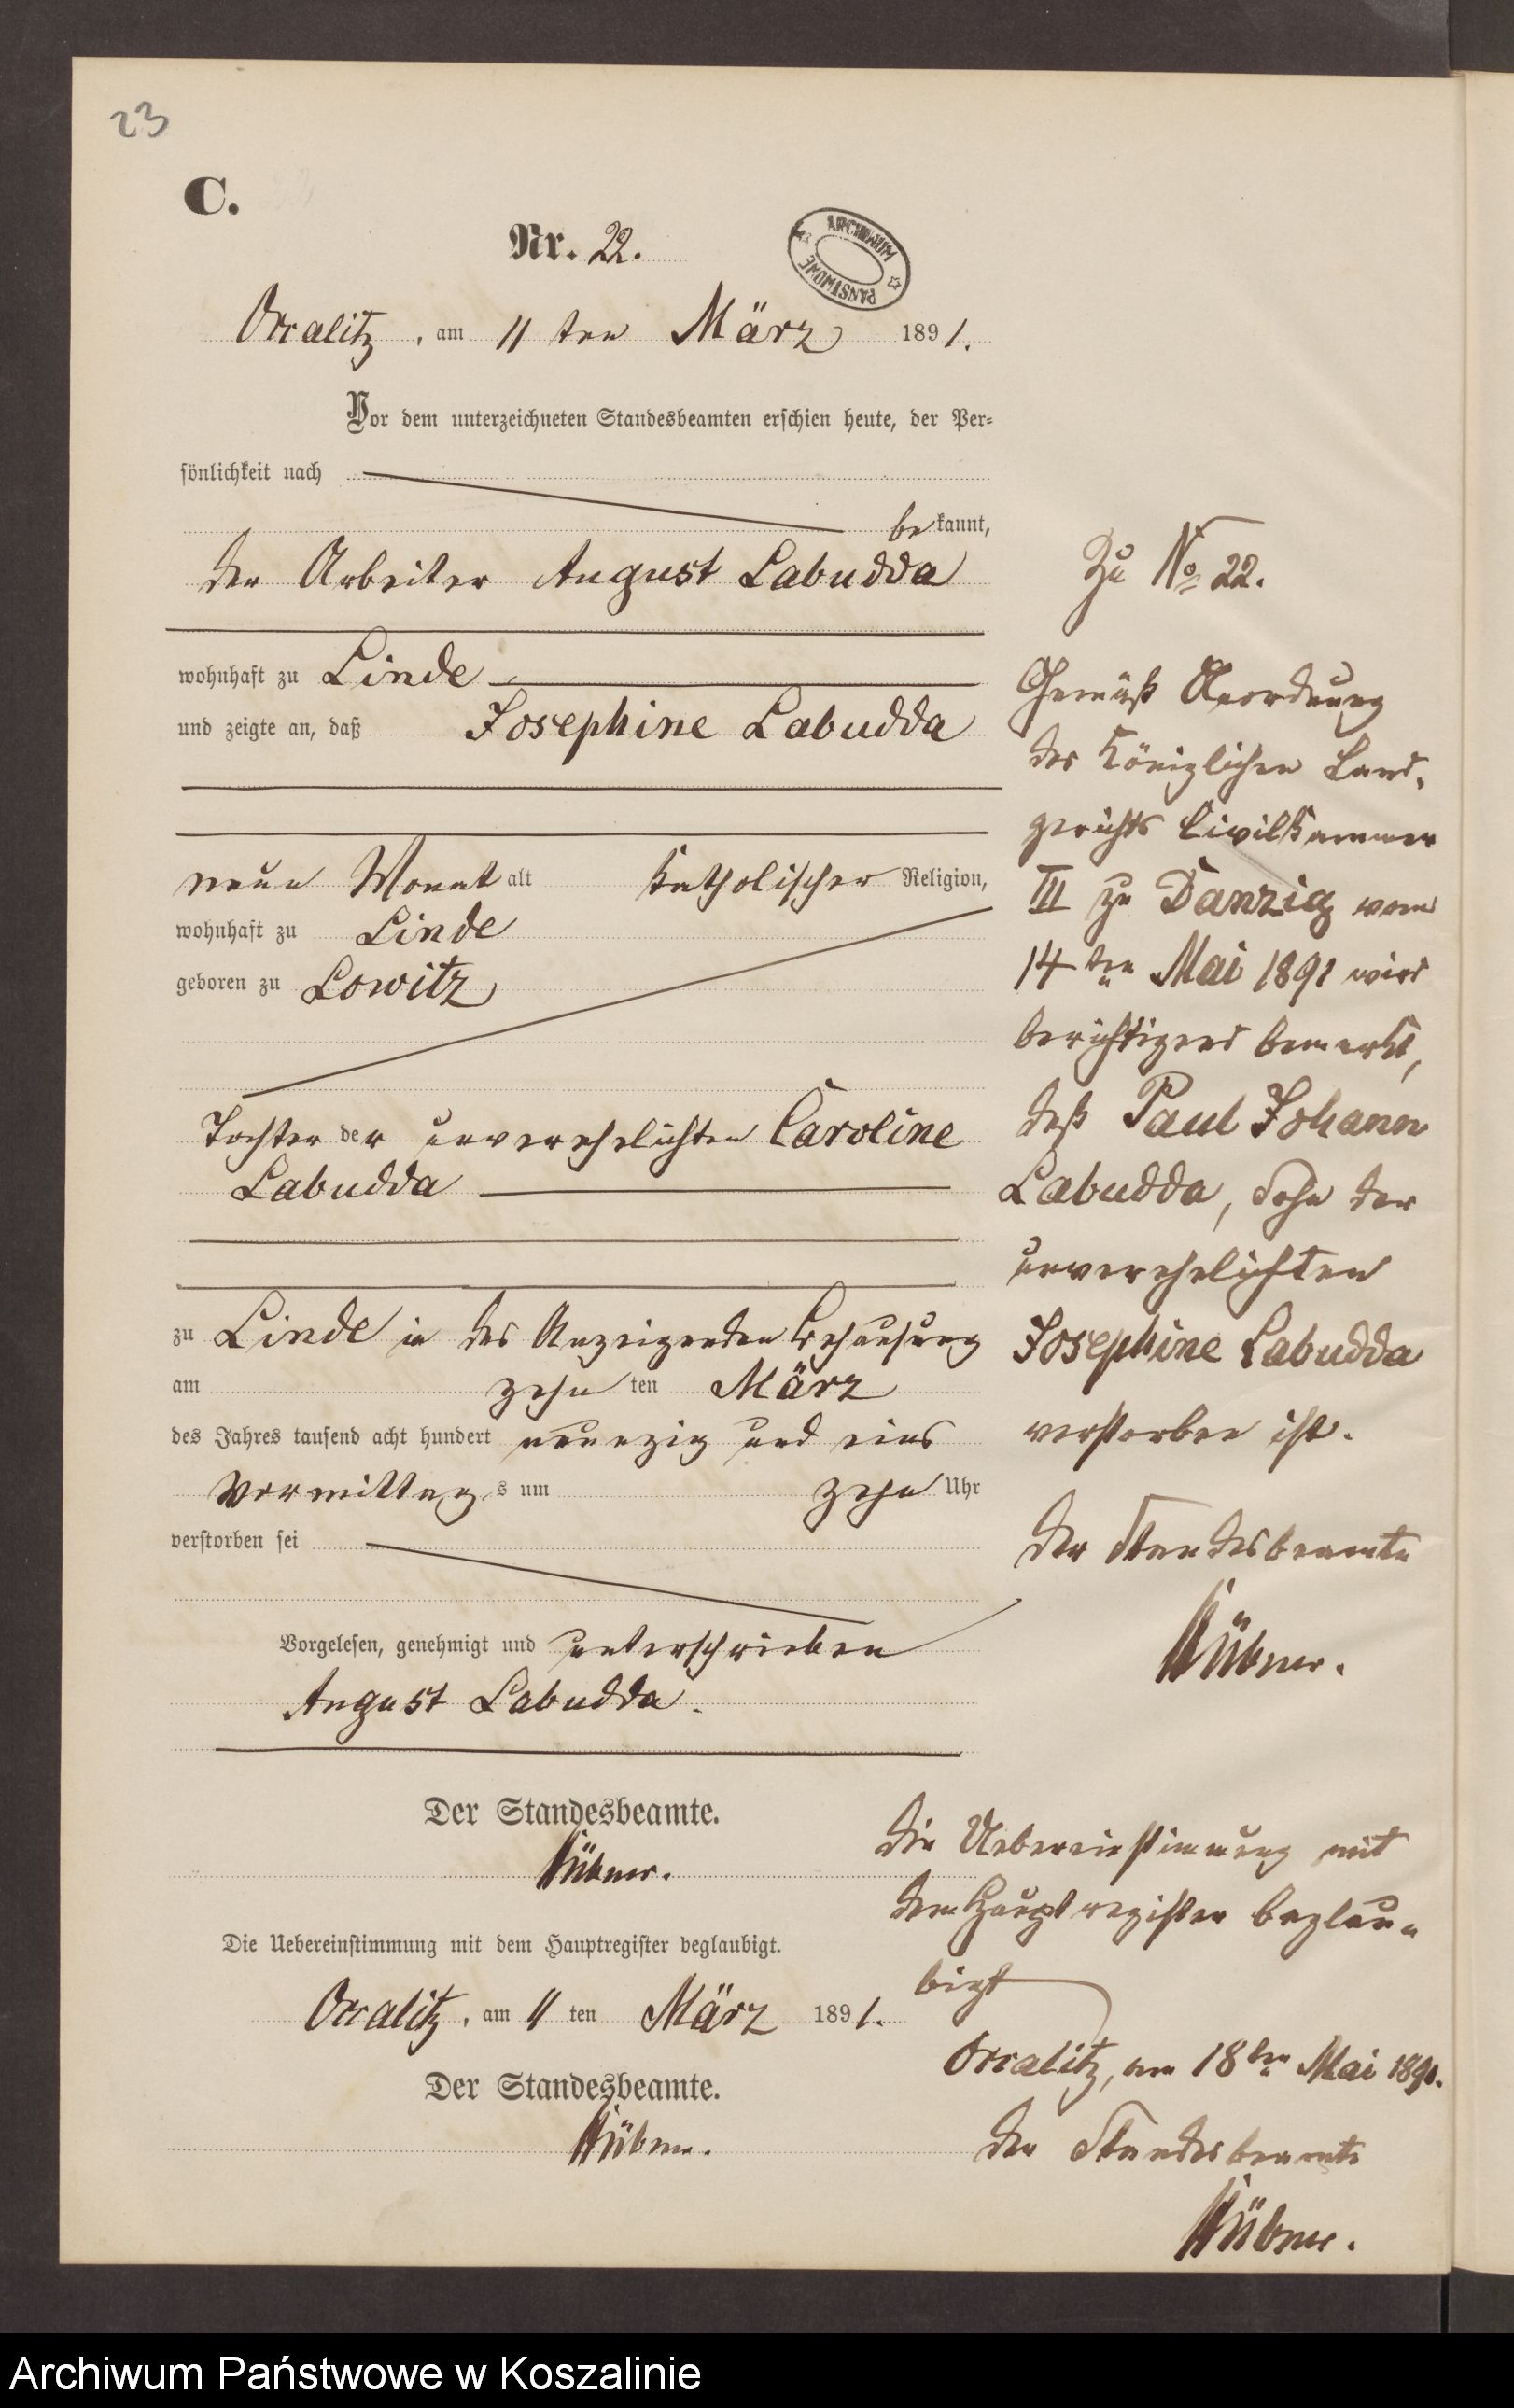 23
C.
Nr. 22.
ARCHIWUM PAŃSTWOWE
Occalitz, am 11 ten März 1891.
Vor dem unterzeichneten Standesbeamten erschien heute, der Per-
sönlichkeit nach
bekannt,
der Arbeiter August Labudda
wohnhaft zu Linde
und zeigte an, daß Josephine Labudda
neun Monat alt katholischer Religion,
wohnhaft zu Linde
geboren zu Lowitz
Tochter der unverehelichten Caroline
Labudda
zu Linde in des Anzeigenden Behausung
am zehn ten März
des Jahres tausend acht hundert neunzig und eins
Vormittags um zehn Uhr
verstorben sei
Vorgelesen, genehmigt und unterschrieben
August Labudda.
Der Standesbeamte.
Hübner.
Die Uebereinstimmung mit dem Hauptregister beglaubigt.
Occalitz, am 11 ten März 1891.
Der Standesbeamte.
Hübner.
Zu No 22.
Gemäß Anordnung
des Königlichen Land-
gerichts Civilkammer
III zu Danzig vom
14ten Mai 1891 wird
berichtigend bemerkt,
daß Paul Johann
Labudda, Sohn der
unverehelichten
Josephine Labudda
verstorben ist.
Der Standesbeamte
Hübner.
Die Uebereinstimmung mit
dem Hauptregister beglau-
bigt
Occalitz, am 18ten Mai 1891.
Der Standesbeamte
Hübner.
Archiwum Państwowe w Koszalinie